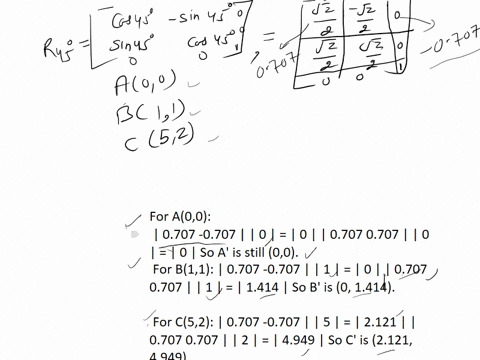 R45° = [ cos45° -sin45° 0 = [ √2/2 -√2/2 0
sin45° cos45° 0 √2/2 √2/2 0
0 0 1 ] 0 0 1
0.707 -0.707
A(0,0)
B(1,1)
C(5,2)
For A(0,0):
| 0.707 -0.707 | | 0 | = | 0 | | 0.707 0.707 | | 0
| = | 0 | So A' is still (0,0).
For B(1,1): | 0.707 -0.707 | | 1 | = | 0 | | 0.707
0.707 | | 1 | = | 1.414 | So B' is (0, 1.414).
For C(5,2): | 0.707 -0.707 | | 5 | = | 2.121 | |
0.707 0.707 | | 2 | = | 4.949 | So C' is (2.121,
4.949)